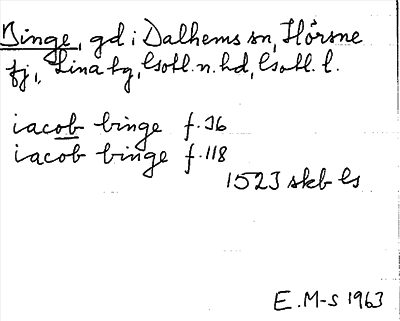 Binge, gd i Dalhems sn, Hörsne
fj, Lina tg, Gotl. n. hd, Gotl. l.
iacob binge f. 36
iacob binge f. 118
1523 skb ls
E. M-s 1963